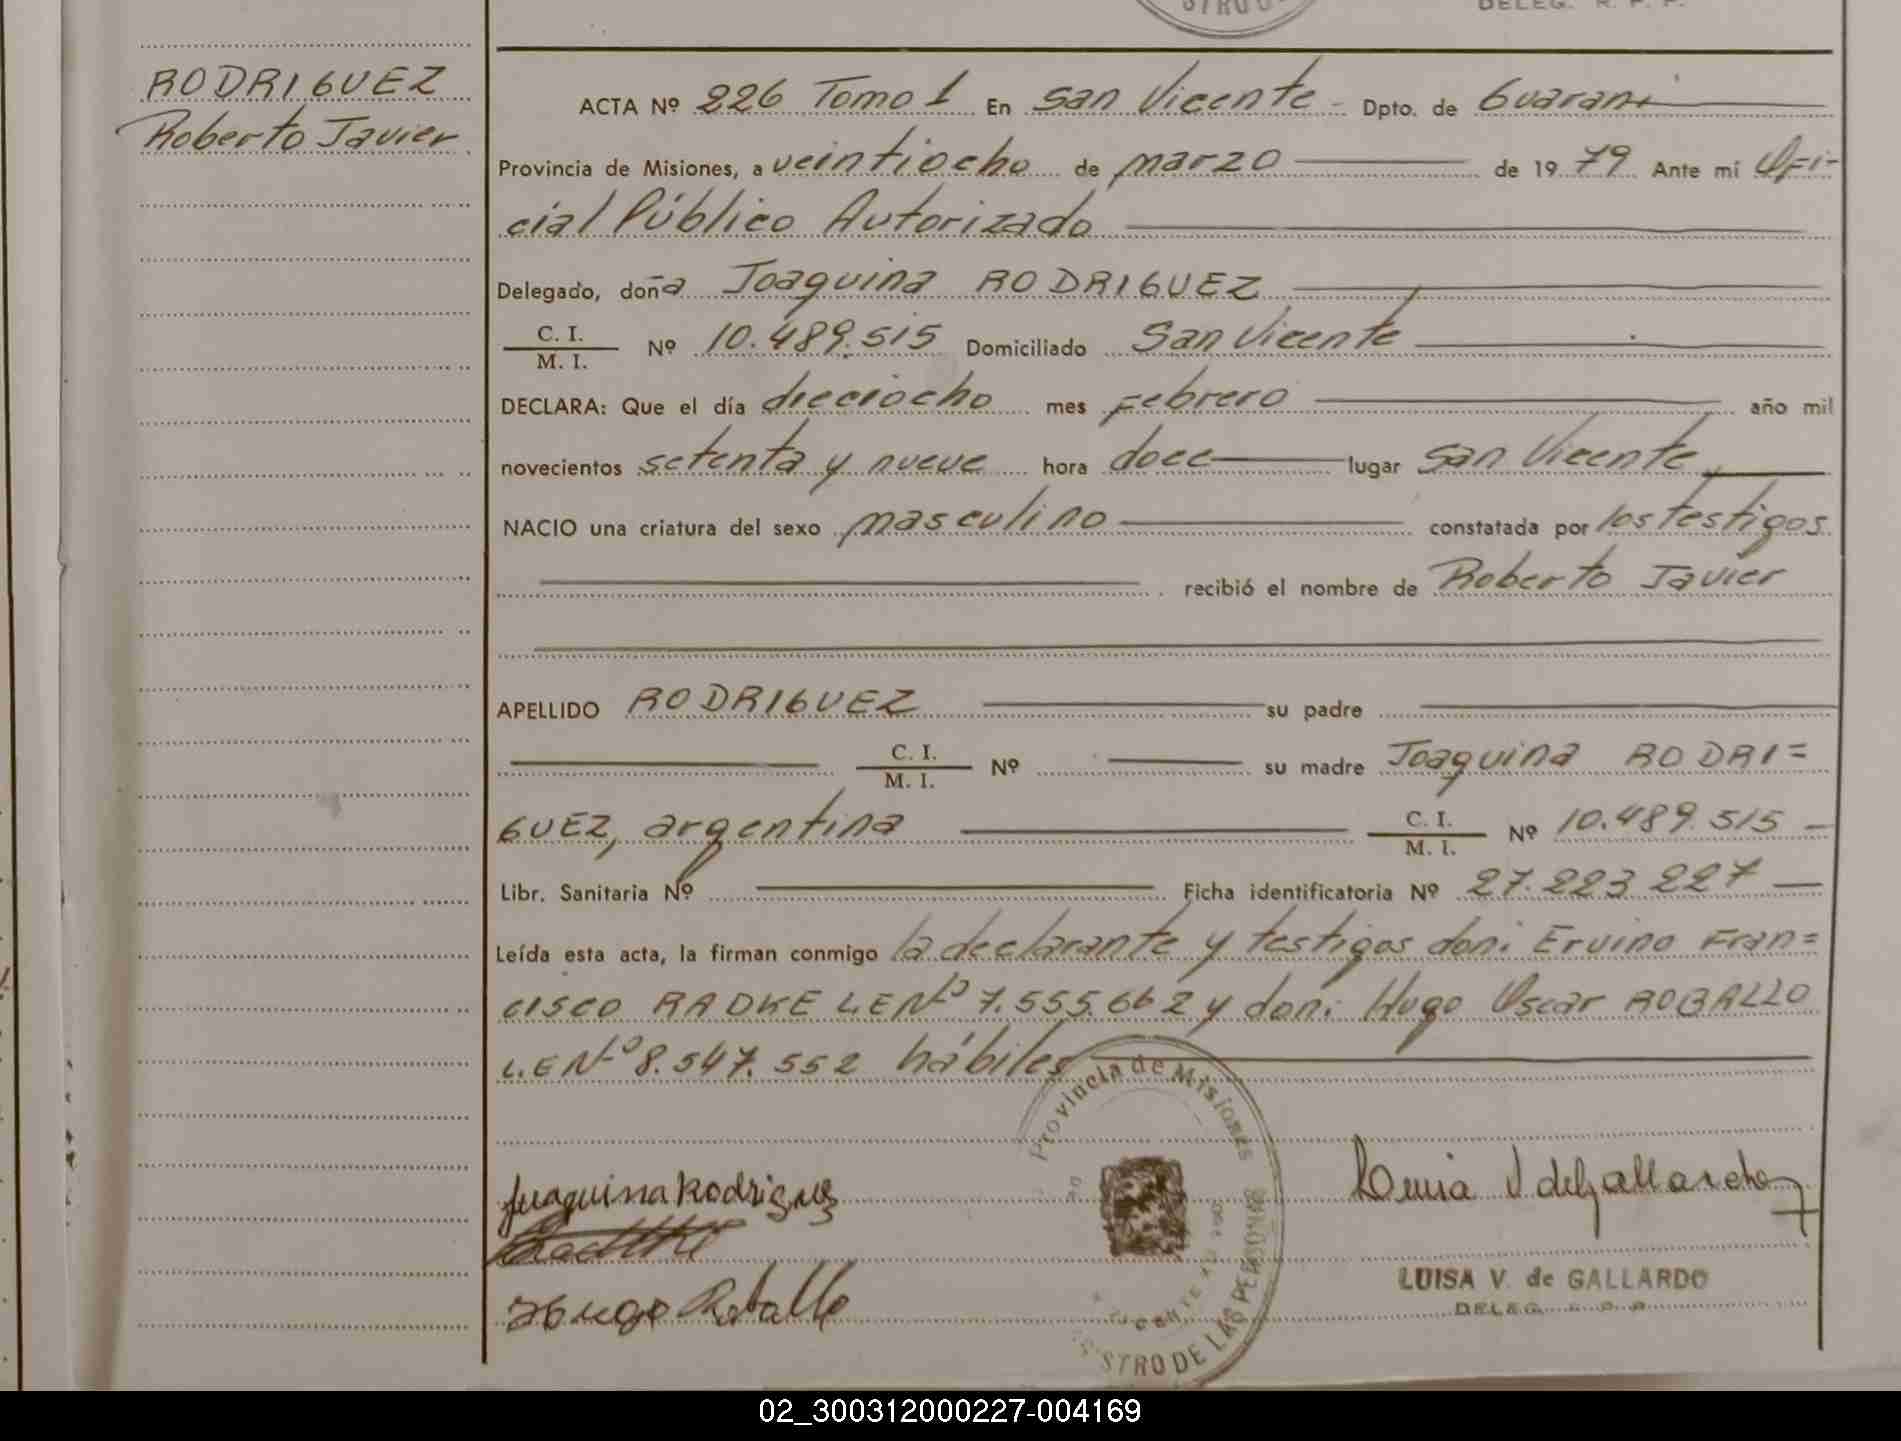 DELEG. R. P. P.
RODRIGUEZ
Roberto Javier
ACTA Nº 226 Tomo 1 En San Vicente - Dpto. de Guarani
Provincia de Misiones, a veintiocho de marzo de 1979 Ante mí Ofi-
cial Público Autorizado
Delegado, doña Joaquina RODRIGUEZ
C. I.
M. I. Nº 10.489.515 Domiciliado San Vicente
DECLARA: Que el día dieciocho mes Febrero año mil
novecientos setenta y nueve hora doce lugar San Vicente
NACIO una criatura del sexo masculino constatada por los testigos
recibió el nombre de Roberto Javier
APELLIDO RODRIGUEZ su padre
C. I.
M. I. Nº su madre Joaquina RODRI=
GUEZ, argentina C. I.
M. I. Nº 10.489.515 -
Libr. Sanitaria Nº Ficha identificatoria Nº 27.223.227 —
Leída esta acta, la firman conmigo la declarante y testigos don: Ervino Fran=
cisco RADKE L.E Nº 7.555.662 y don: Hugo Oscar ROBALLO
L.E Nº 8.547.552 hábiles
Provincia de Misiones
REGISTRO DE LAS PERSONAS
Juaquina Rodriguez
Luisa V de Gallardo
Hugo Roballo
LUISA V. de GALLARDO
DELEG.
02_300312000227-004169